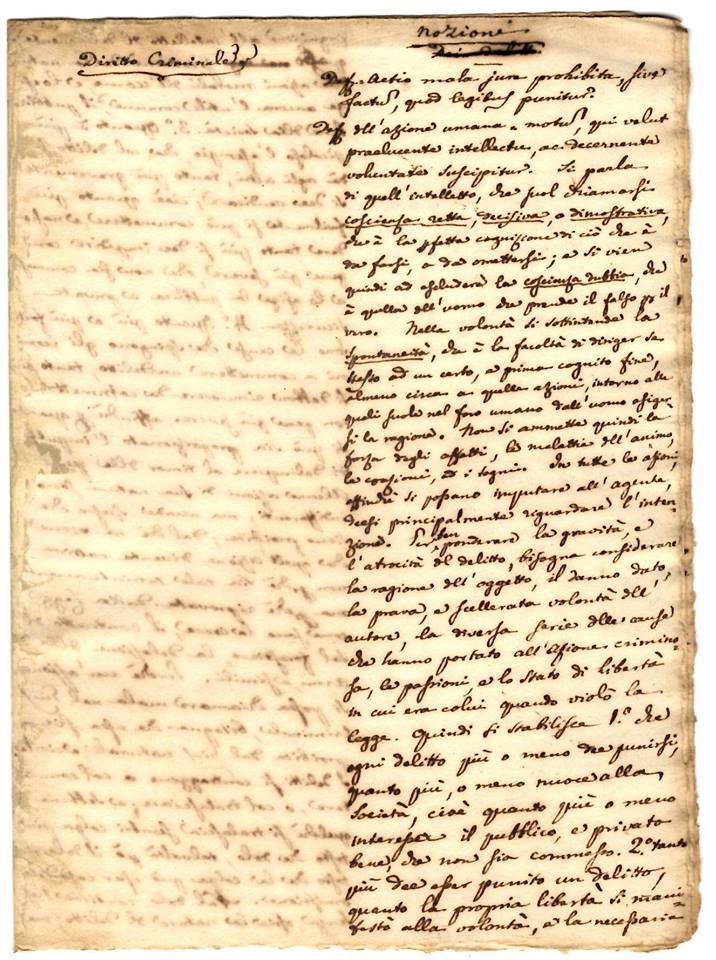 Diritto Criminale
nozioni
Def. Actio mala jura prohibita, sive
factus, quod legibus punitur.
Def. dll'azione umana = motus, qui velut
praelucente intellectu, ac decernente
voluntate suscipitur. Si parla
di quell'intelletto, che suol chiamarsi
coscienza retta, decisiva, o dimostrativa,
che è la pfetta cognizione di ciò che è
da farsi, o da omettersi; e si vien
quindi ad escluderà la coscienza dubbia, che
è quella dll'uomo che prende il falso pr il
vero. Nella volontà si sottintende la
spontaneità, che è la facoltà di diriger se
stesso ad un certo, e prima cognito fine,
almeno circa a quelle azioni, intorno alle
quali suole nel foro umano dall'uomo esiger
si la ragione. Non si ammette quindi la
forza degli affetti, le malattie dll'animo,
le coazioni, ed i sogni. In tutte le azioni,
affinchè si possano imputare all'agente,
deesi principalmente riguardare l'inten
zione. Per ben ponderare la gravità, e
l'atrocità dl delitto, bisogna considerare
la ragione dll'oggetto, il danno dato,
la prava, e scellerata volontà dll'
autore, la diversa serie dlle cause
che hanno portato all'Azione crimino
sa, le passioni, e lo stato di libertà
in cui era colui quando violò la
legge. Quindi si stabilisce 1.° che
ogni delitto più o meno dee punirsi,
quanto più, o meno nuoce alla
società, cioè quanto più o meno
interesse il pubblico, e privato
bene, che non sia commosso. 2.° tanto
più dee esser punito un delitto,
quanto la propria libertà si mani
festò alla volontà, e la necessaria